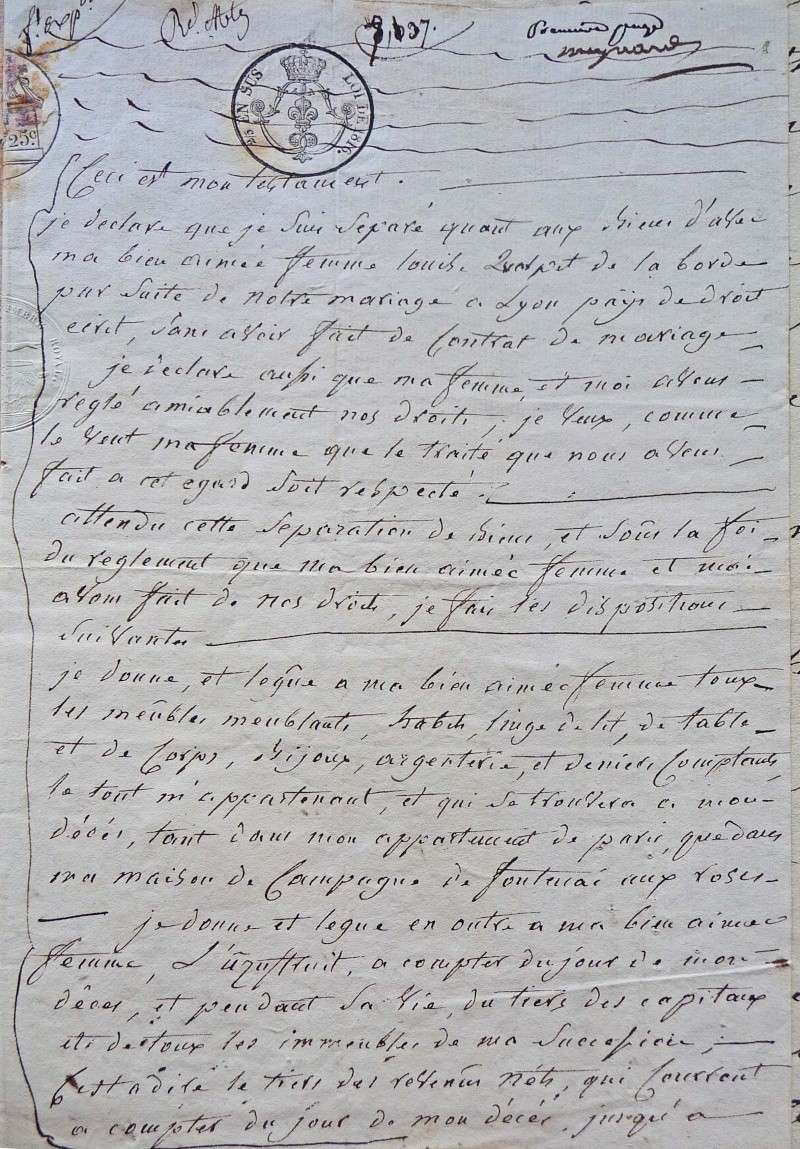 Premiere page
25 c
2/5 EN SUS LOI DE 1816.
Ceci est mon testament.
je declare que je suis separé quant aux biens d'avec
ma bien aimée femme louise de la borde
par suite de notre mariage a Lyon päys de droit
ecrit, sans avoir fait de Contrat de mariage
je declare aussi que ma femme, et moi avons
reglé amiablement nos droits, je veux, comme
le veut ma femme que le traité que nous avons
fait a cet egard soit respecté.
attendu cette separation de biens, et sous la foi
du reglement que ma bien aimée femme et moi
avons fait de nos droits, je fais les dispositions
suivantes
je donne, et legue a ma bien aimée femme toux
les meubles meublants, habits, linge de lit, de table
et de Corps, bijoux, argenterie, et deniers Comptants
le tout m'appartenant, et qui se trouvera a mon
décés, tant dans mon appartement de paris, que dans
ma maison de Campagne de fontenai aux roses
je donne et legue en outre a ma bien aimée
femme, L'uzufruit, a compter du jour de mon
décés, et pendant sa vie, du tiers des capitaux
et de toux les immeubles de ma succession;
C'est a dire le tiers des revenus nets, qui Courront
a compter du jour de mon décés, jusqu'a